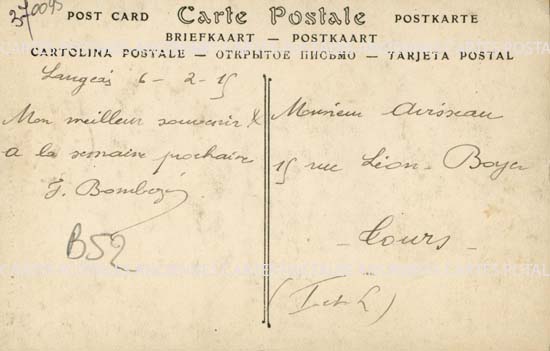 370095
POST CARD Carte Postale POSTKARTE
BRIEFKAART — POSTKAART
CARTOLINA POSTALE — ОТКРЫТОЕ ПИСЬМО — TARJETA POSTAL
Langeais 6 - 2 - 15
Mon meilleur souvenir &
a la semaine prochaine
J. Bombezi
B52
Monsieur Avisseau
15 rue Léon Boyer
- Tours -
(I et L)